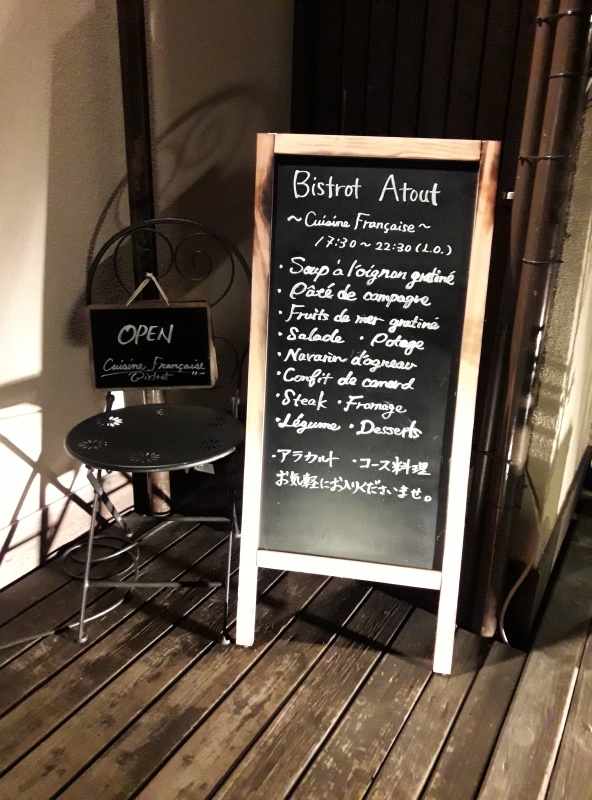 Bistrot Atout
~Cuisine Française~
17:30~22:30 (L.O.)
・Soup à l'oignon gratiné
・Pâté de campagne
・Fruits de mer gratiné
・Salade ・Potage
・Navarin d'agneau
・Confit de canard
・Steak ・Fromage
・Légume ・Desserts
・アラカルト ・コース料理
お気軽にお入りくださいませ。
OPEN
Cuisine Française
Bistrot